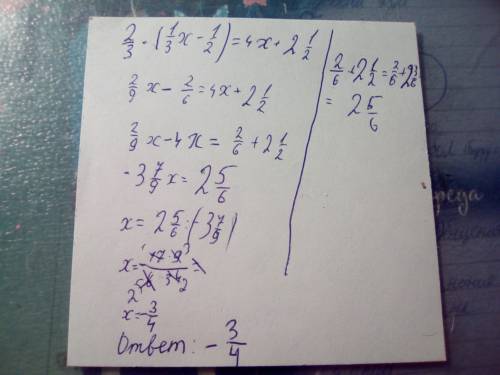 2/3 · (1/3x - 1/2) = 4x + 2 1/2
2/9x - 2/6 = 4x + 2 1/2
2/9x - 4x = 2/6 + 2 1/2
- 3 7/9 x = 2 5/6
x = 2 5/6 : (-3 7/9)
x = - 17 · 9 / 6 · 34 =
x = - 3/4
Ответ: - 3/4
2/6 + 2 1/2 = 2/6 + 2 3/6
= 2 5/6